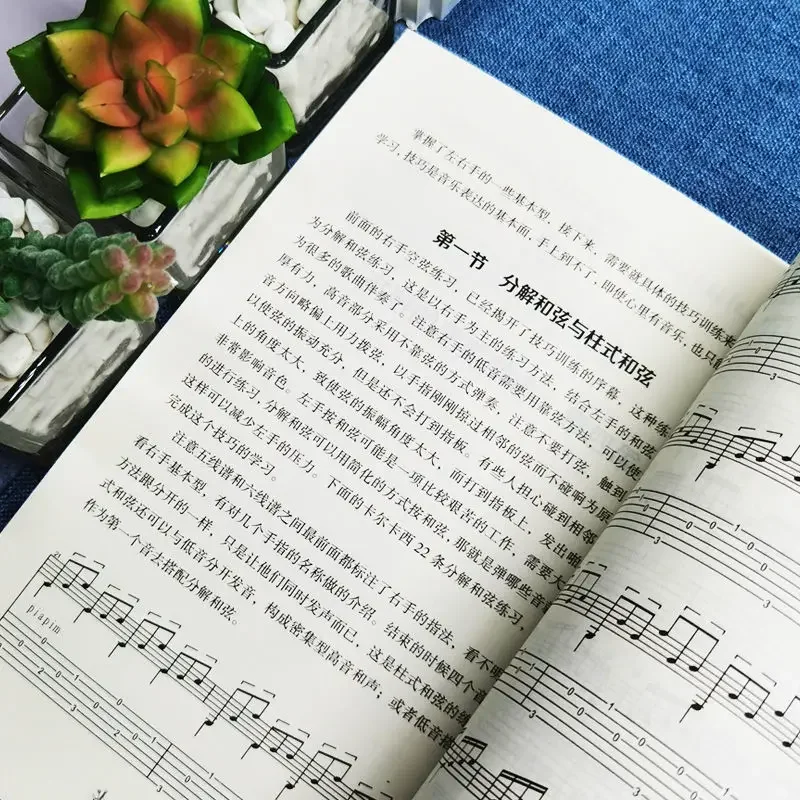 掌握了左右手的一些基本型，接下来，需要就具体的技巧训练来
学习，技巧是音乐表达的基本面，手上到不了，即使心里有音乐，也只
第一节 分解和弦与柱式和弦
前面的右手空弦练习，已经揭开了技巧训练的序幕，这种练
为分解和弦练习，这是以右手为主的练习方法，结合左手的和弦
为很多的歌曲伴奏了。注意右手的低音需要用靠弦方法，可以使
厚有力，高音部分采用不靠弦的方式弹奏，注意不要打弦，触到
音方向略偏上用力拨弦，以手指刚刚掠过相邻的弦而不碰响为原
以使弦的振动充分，但是还不会打到指板。有些人担心碰到相邻
上的角度太大，致使弦的振幅角度太大，而打到指板上，发出啪
非常影响音色。左手按和弦可能是一项比较艰苦的工作，需要大
的进行练习，分解和弦可以用简化的方式按和弦，那就是弹哪些音
这样可以减少左手的压力。下面的卡尔卡西22条分解和弦练习，
完成这个技巧的学习。
注意五线谱和六线谱之间最前面都标注了右手的指法，看不明
看右手基本型，有对几个手指的名称做的介绍。结束的时候四个音
方法跟分开的一样，只是让他们同时发声而已，这是柱式和弦的练
式和弦还可以与低音分开发音，构成密集型高音和声；或者低音搭
作为第一个音去搭配分解和弦。
21
p i a p i m